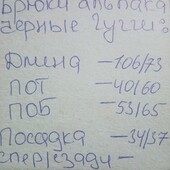 Брюки альпака
черные Гуччи:
Длина - 106/73
ПОТ - 40/60
ПОБ - 53/65
Посадка - 34/37
спер/сзади -